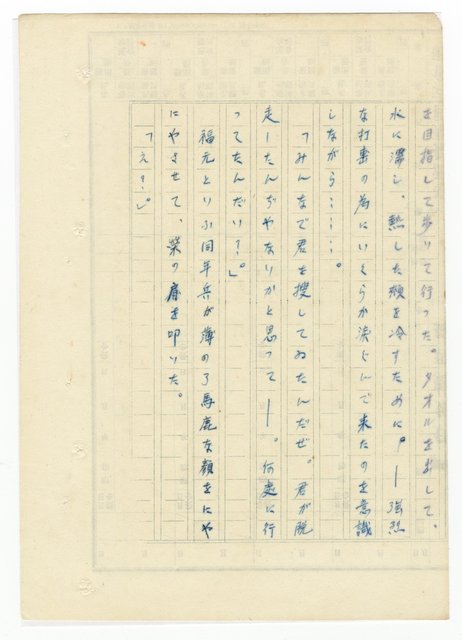 を目指して歩いて行った。タオルを出して、
水に濡し、熱した頬を冷すために。――強烈
な打撃の為にいくらか涙ぐんで来たのを意識
しながら……。
「みんなで君を捜してゐたんだぜ。君が脱
走したんぢやないかと思って――。何処に行
ってたんだい？」。
福元といふ同年兵が薄のろ馬鹿な顔をにや
にやさせて、栄の肩を叩いた。
「え？」。